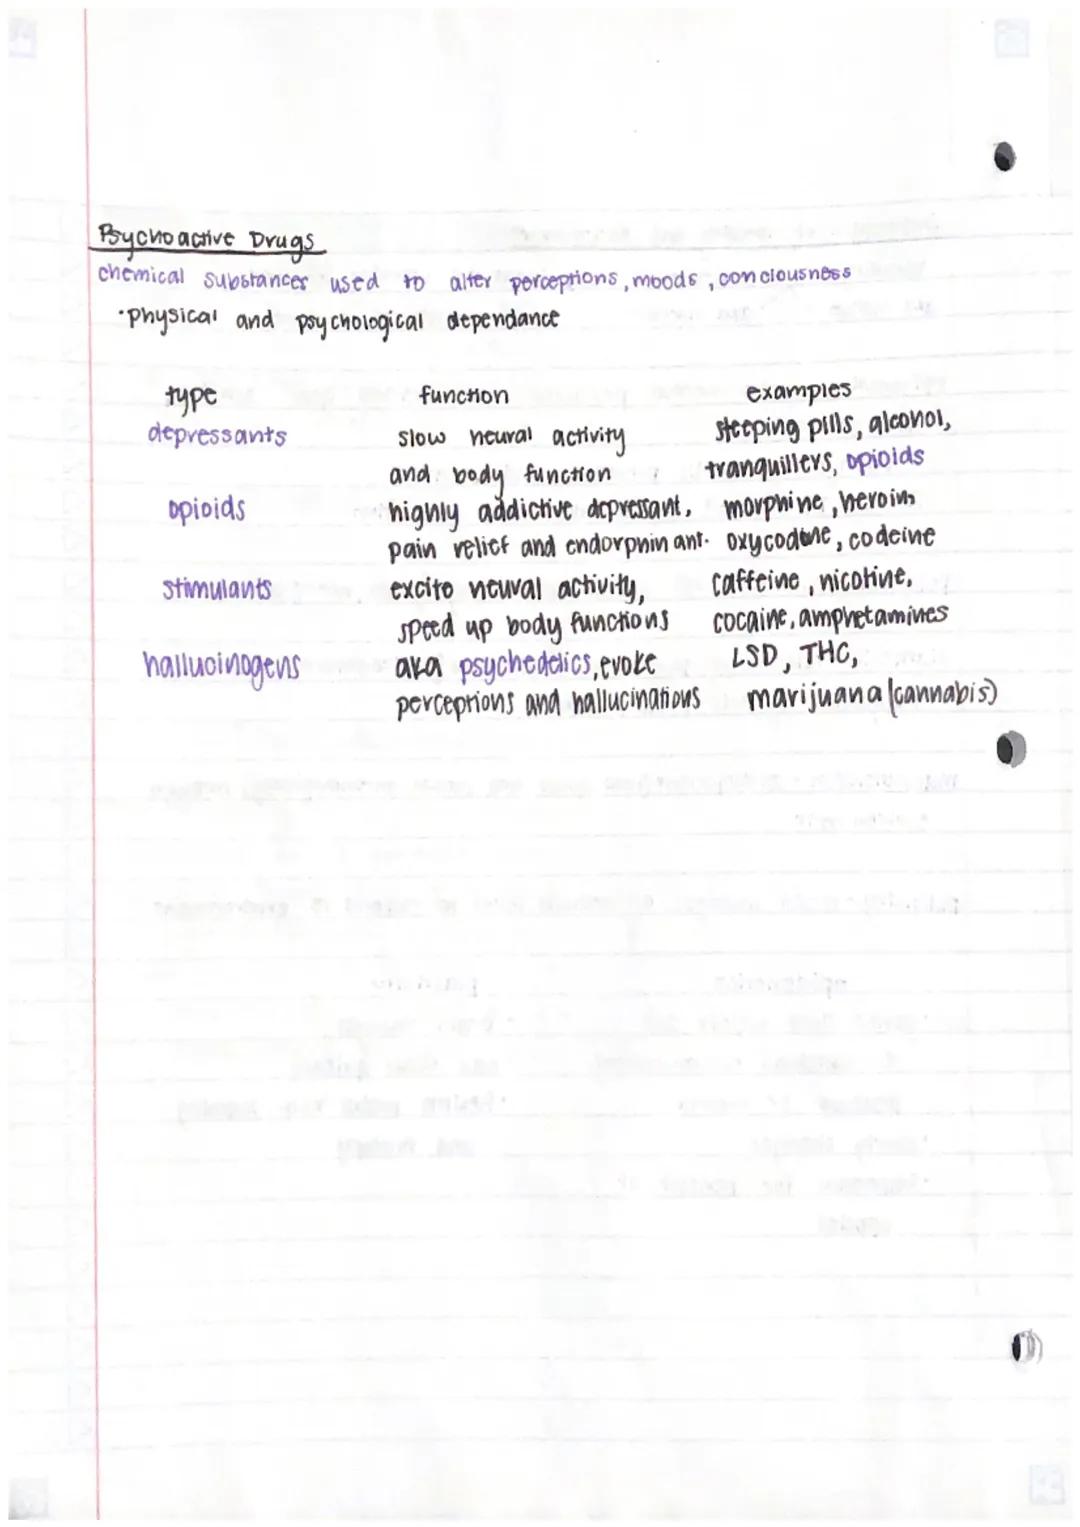 Psychoactive Drugs
chemical substances used to alter perceptions, moods, conciousness
·physical and psychological dependance
type function examples
depressants slow neural activity sleeping pills, alcohol,
and body function tranquillers, opioids
opioids highly addictive depressant, morphine, heroin,
pain relief and endorphin ant. oxycodone, codeine
stimulants excite neural activity, caffeine, nicotine,
speed up body functions cocaine, amphetamines
hallucinogens aka psychedelics, evoke LSD, THC,
perceptions and hallucinations marijuana (cannabis)